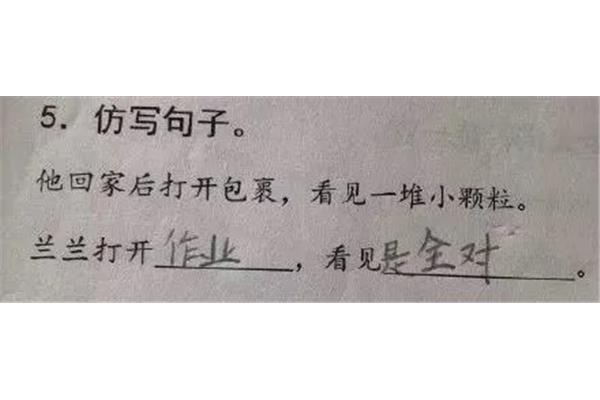 5. 仿写句子。
他回家后打开包裹，看见一堆小颗粒。
兰兰打开作业，看见是全对。